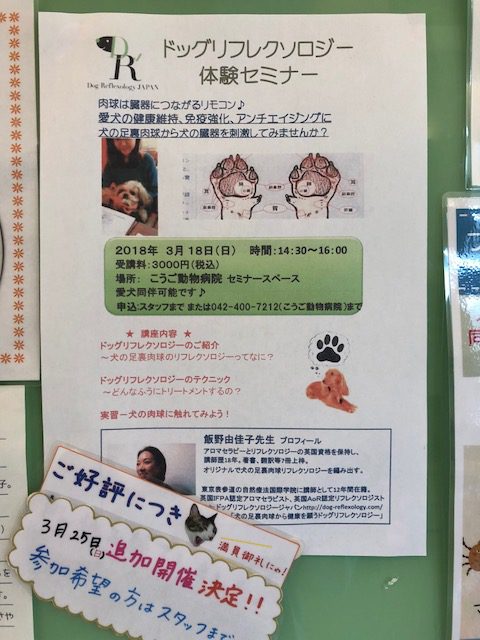 DR
Dog Reflexology JAPAN
ドッグリフレクソロジー
体験セミナー
肉球は臓器につながるリモコン♪
愛犬の健康維持、免疫強化、アンチエイジングに
犬の足裏肉球から犬の臓器を刺激してみませんか?
2018年 3月18日(日) 時間:14:30～16:00
受講料:3000円(税込)
場所: こうご動物病院 セミナースペース
愛犬同伴可能です♪
申込:スタッフまで または042-400-7212(こうご動物病院)まで
★ 講座内容 ★
ドッグリフレクソロジーのご紹介
～犬の足裏肉球のリフレクソロジーってなに?
ドッグリフレクソロジーのテクニック
～どんなふうにトリートメントするの?
実習－犬の肉球に触れてみよう!
飯野由佳子先生 プロフィール
アロマセラピーとリフレクソロジーの英国資格を保持し、
講師歴18年。著書、翻訳等7冊上梓。
オリジナルで犬の足裏肉球リフレクソロジーを編み出す。
東京表参道の自然療法国際学院に講師として12年間在籍。
英国IFPA認定アロマセラピスト、英国AoR認定リフレクソロジスト
ドッグリフレクソロジージャパンhttp://dog-reflexology.com/
「犬の足裏肉球から健康を願うドッグリフレクソロジー」
ご好評につき
満員御礼にの!
3月25日(日)追加開催決定!!
参加希望の方はスタッフまで